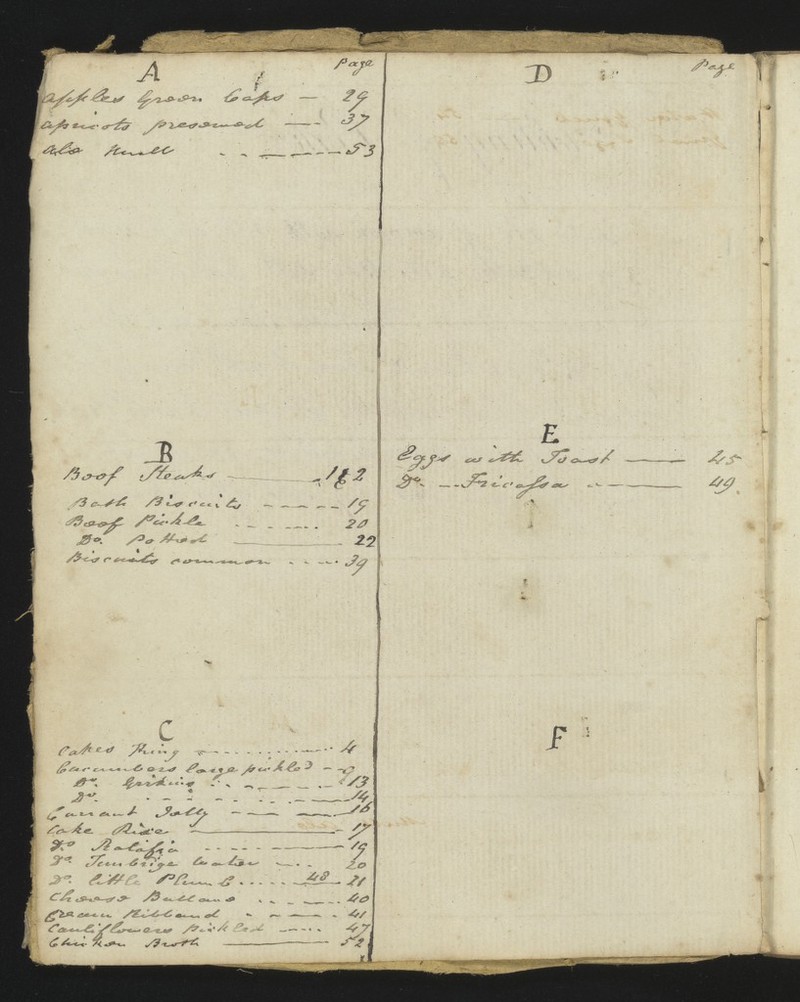 A Page
Apples Green Caps — 29
Apricots preserved — 37
Ale Mull - - — — — 53
B
Beef Steaks — 2
Bath Biscuits - - - - 19
Beef Pickle - - - - - 20
Do. Potted — 22
Biscuits common - - - 39
C
Cakes - - - - - - 4
Cucumbers large pickled - 9
Do. - - - - 13
Do. - - - - - - 14
Currant Jelly - - - 16
Cake Rice — 17
Do. Ratafia - - - - 19
Do. Tunbridge water - - - 20
Do. little Plumb - - - - 48 - 21
Cheese Buttano - - - - 40
Cream Ribband - - - - 41
Cauliflowers Pickled - - - 47
Chicken Broth — 52
D Page
E
Eggs with Toast — 45
Do. - - Fricassa - - — 49.
F